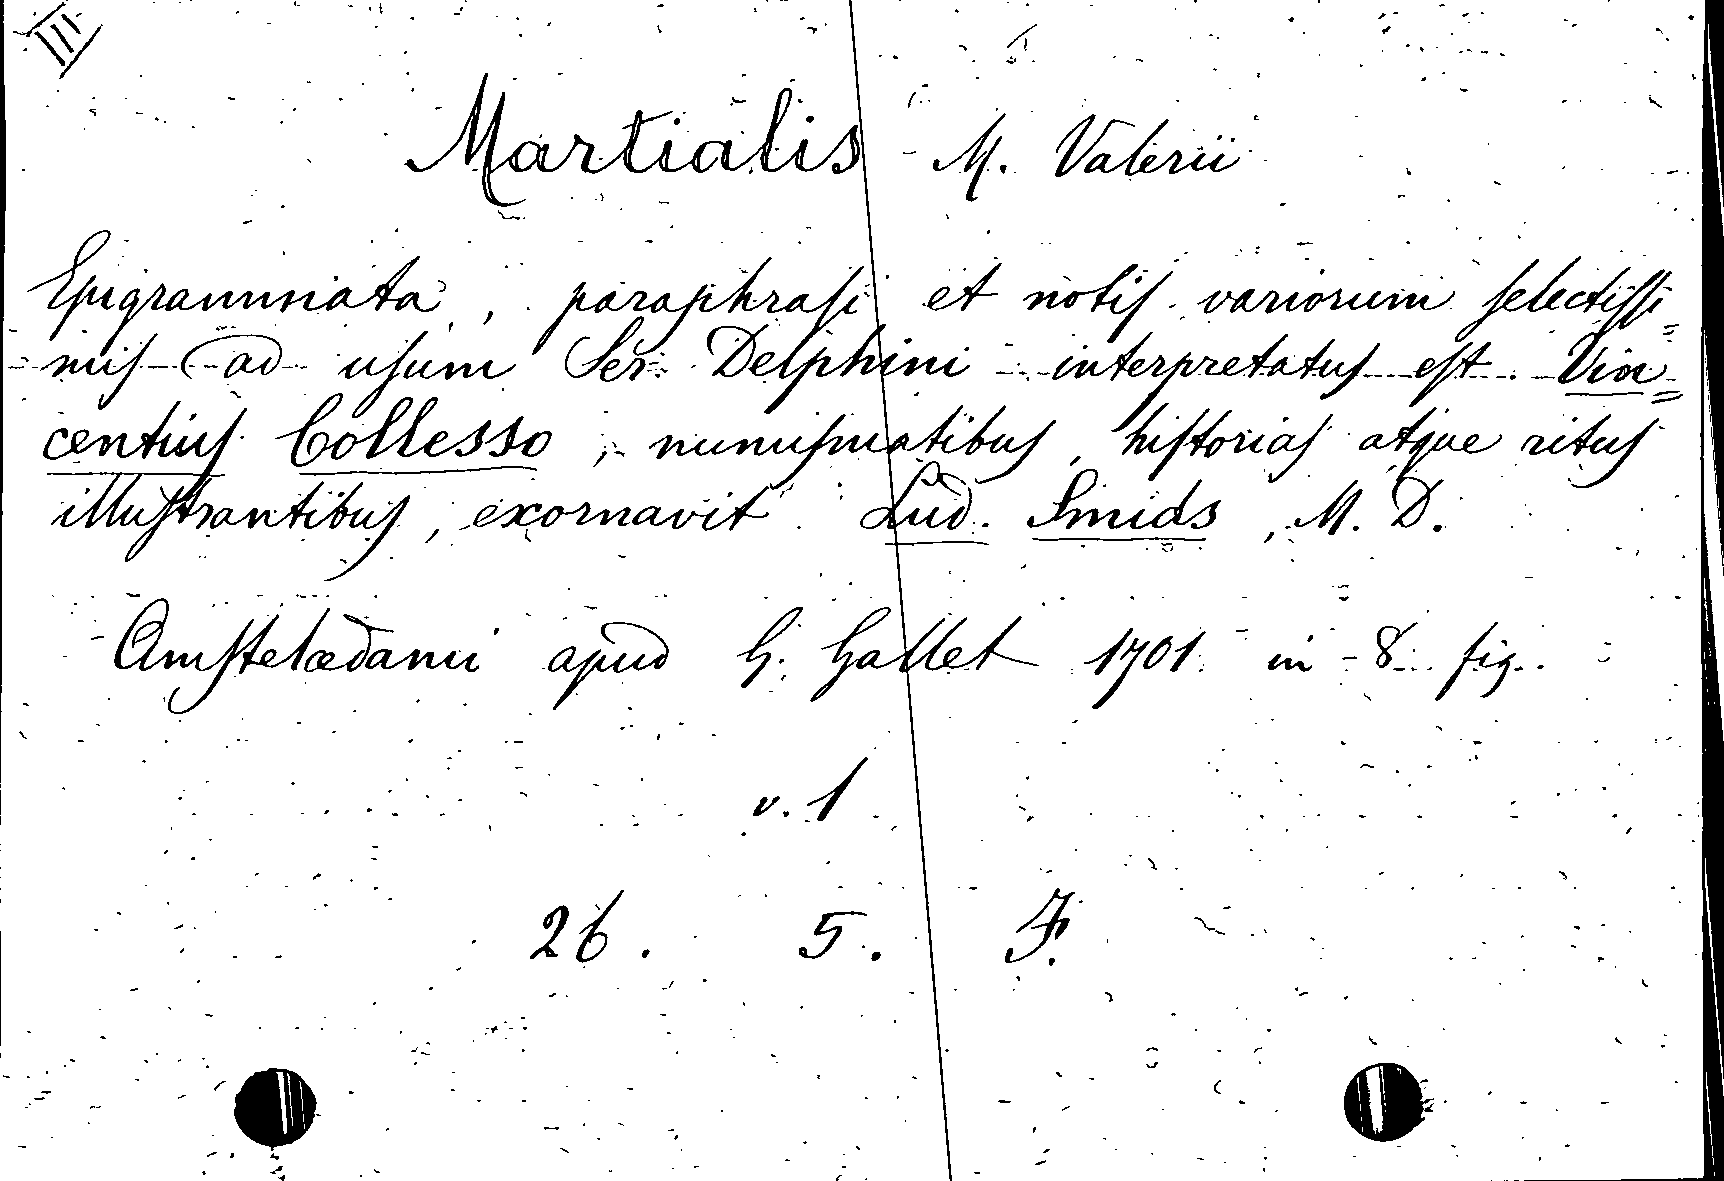 III
Martialis M. Valerii
Epigrammata, paraphrasi et notis variorum selectissi=
mis ad usum Ser. Delphini interpretatus est Vin=
centius Collesso, numismatibus, historias atque ritus
illustrantibus, exornavit Lud. Smids, M. D.
Amstelædami apud G. Gallet 1701 in-8 fig.
v. 1
26. 5. F.